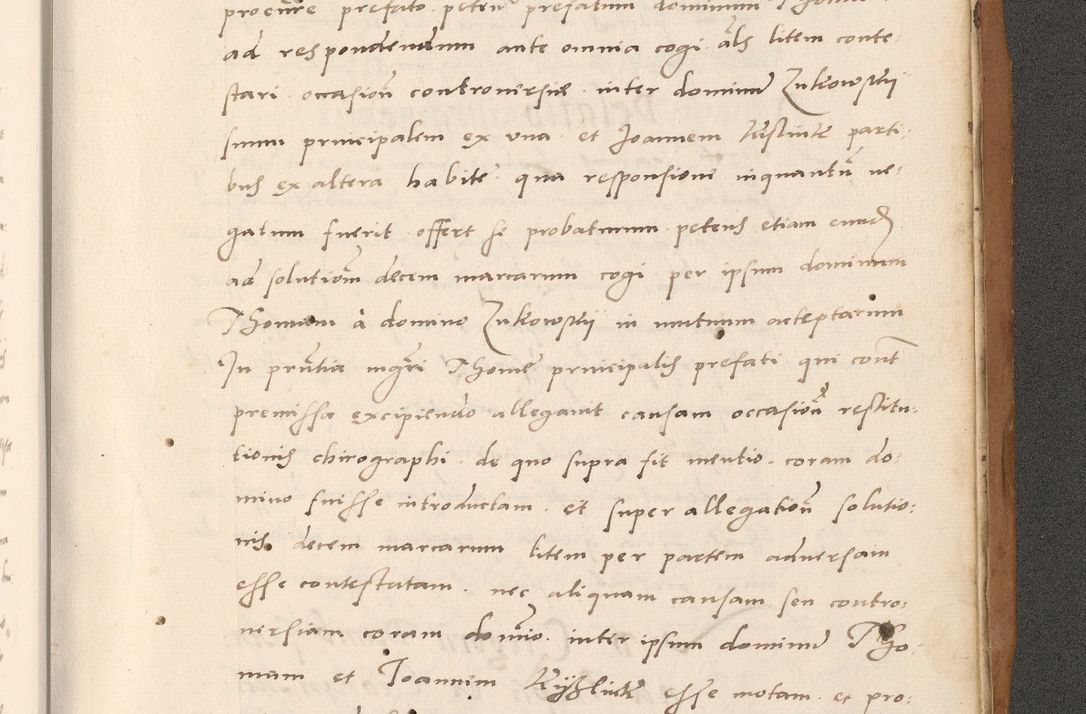 procure prefato petens prefatum dominum Thomam
ad respondendum ante omnia cogi als litem conte-
stari occasion controversie inter dominum Zukowskii
suum principalem ex una et Joannem parti-
bus ex altera habite qua responsione inquantum ne-
gatum fuerit offert se probaturum petens etiam eund
ad solutionem decem marcarum cogi per ipsum dominum
Thomam a domino Zukowskii in mutuum acceptarum
In prntia mgri Thome principalis prefati qui cont
premissa excipiendo allegavit causam occasion restitu-
tionis chirographi de quo supra fit mentio coram do-
mino fuisse introductam et super allegation solutio-
nis decem marcarum litem per partem adversam
esse contestatam nec aliquam causam seu contro-
versiam coram domino inter ipsum dominum Tho-
mam et Joannem esse motam et pro-